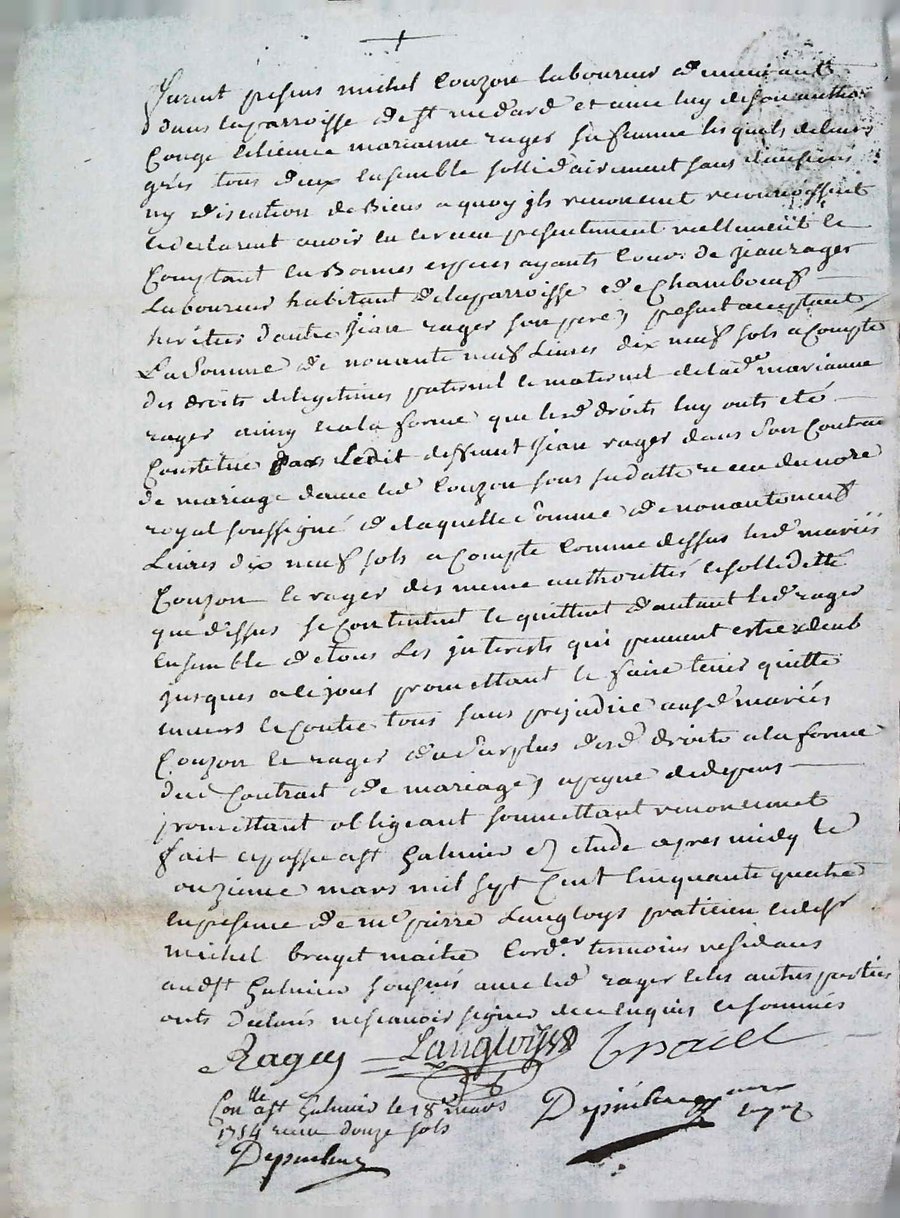 furent presens michel Couzon laboureur demeurant
dans la parroisse de st medard et avec luy de son autho
Congé licience marianne rager sa femme lesquels de leurs
grés tous deux ensemble sollidairement sans division
ny discution de Biens a quoy ils renoncent reconnoissent
et declarent avoir eu et receu presentement reellement et
Comptant en Bonnes especes ayants cours de jean rager
Laboureur habitant de la parroisse de Chambœuf
heritier d'autre jean rager son pere, present acceptant
La Somme de nonante neuf Livres dix neuf sols a Compte
des droits de legitimes paternel et maternel de lade marianne
rager ainsy et a la forme que lesd droits luy onts eté
Constitué par Ledit deffunt jean rager dans son Contrat
de mariage avec led Couzon sous sa datte receu du nore
royal soussigné de laquelle somme de nonante neuf
Livres dix neuf sols a Compte Comme dessus lesd mariés
Couzon et rager des meme authorittés et solliditté
que dessus se Contentent et quittent d'autant led rager
Ensemble de tous les interests qui peuvent estre deub
jusques a ce jour promettant le faire tenir quitte
envers et contre tous sans prejudice ausd mariés
Couzon et rager du surplus desd droits a la forme
dud Contrat de mariage, a peyne de depens
promettant obligeant soumettant renoncent
fait et passé a st Galmier en etude apres midy le
onzieme mars mil sept Cent Cinquante quatre
En presence de me pierre Langloys praticien et de sr
michel braget maitre Corder temoins residans
aud st Galmier soussnés avec led rager et les autres parties
onts declaré ne scavoir signer de ce enquis et sommés
Ragey Langloys
Conlle a st Galmier le 18e mars
1754 receu douze sols